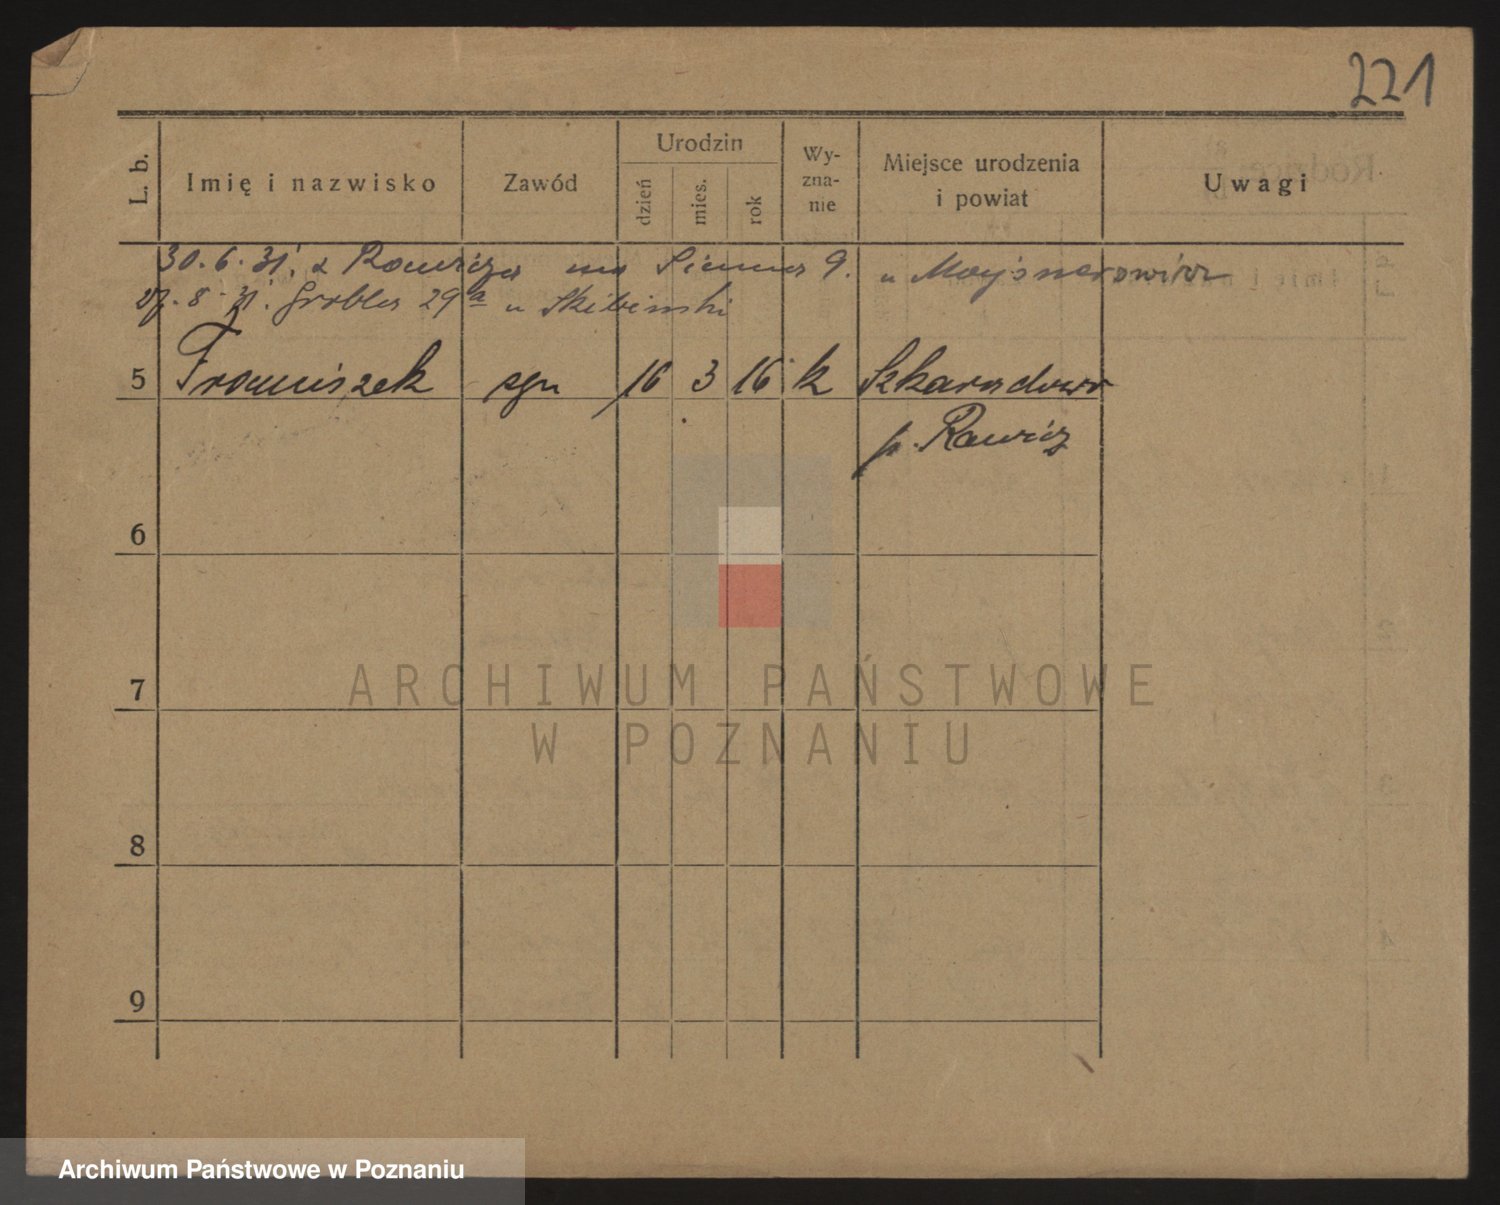 221
L. b.
Imię i nazwisko
Zawód
Urodzin
dzień
mies.
rok
Wy-
zna-
nie
Miejsce urodzenia
i powiat
Uwagi
30.6.31. z Rawicza na Sienna 9. u
27.8.31. Grobla 29a u Skibinski
5 Franciszek syn 16 3 16 k Szkaradowo
p. Rawicz
6
7
8
9
ARCHIWUM PAŃSTWOWE
W POZNANIU
Archiwum Państwowe w Poznaniu